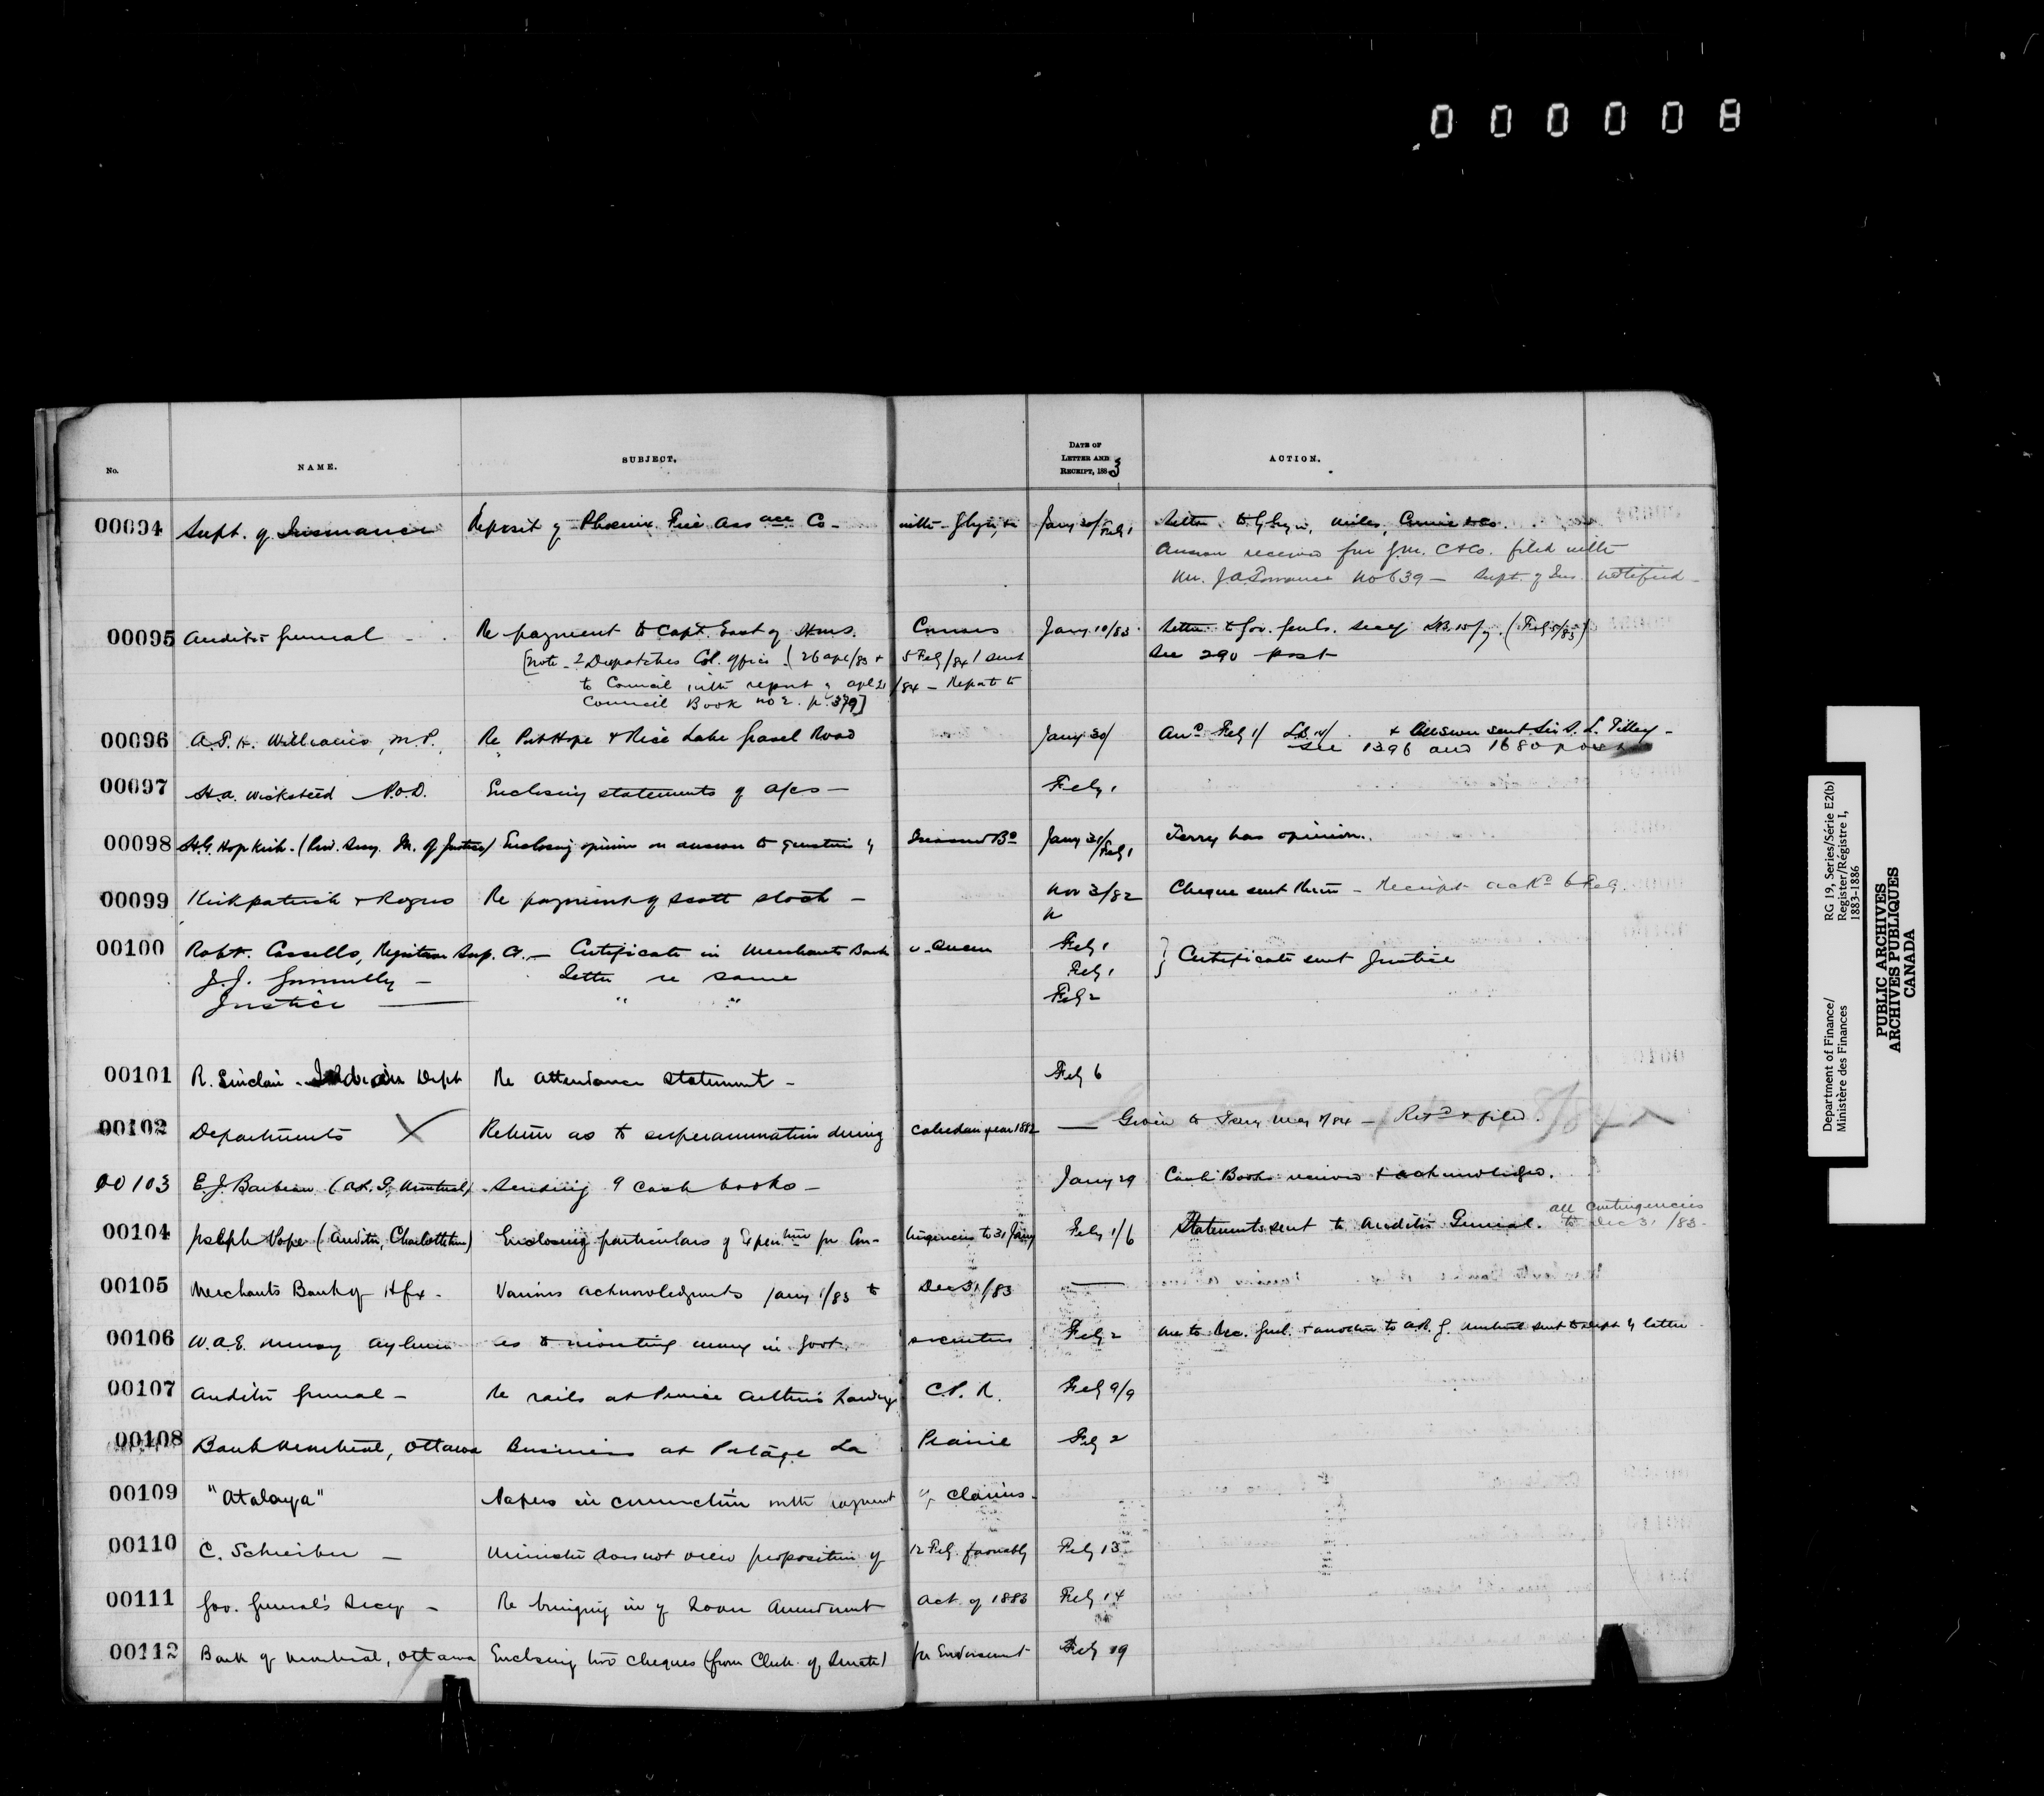 000008
No.
NAME.
SUBJECT.
DATE OF
LETTER AND
RECEIPT, 1883
ACTION.
00094 Supt. of Insurance Deposit of Phoenix Fire Ass ace Co - with Glyn, &c Jany 30/Feby 1 Letter to Glyn, Mills, Currie & Co.
Answer received from G.M. C & Co. filed with
Mr. J.A. Torrance No 639 - Supt. of Ins. notified -
00095 Auditor General - Re payment to Capt. East of H.M.S. Comus Jany 10/83 Letter to Gov. Genls. Secy LB. 15/7. (Feb 5/83)
[note - 2 Despatches Col. Office (26 apl/83 + 5 Feby/84) sent See 290 post
to Council with report of apl 21/84 - Report to
Council Book No 2. p. 379]
00096 A.T.H. Williams, M.P. Re Port Hope & Rice Lake Gravel Road Jany 30/ Ansd Feby 1/ LB. 15/ . + Answer sent Sir S. L. Tilley -
See 1396 and 1680 post
00097 H.A. Wicksteed P.O.D. Enclosing statements of a/cs - Feby 1
00098 H.G. Hopkirk - (Priv. Secy. M. of Justice) Enclosing opinion on answer to question of Insurance Bo Jany 31/Feby 1 Terry has opinion.
00099 Kirkpatrick & Rogers Re payment of Scott stock - Nov 3/82 Cheque sent them - Receipt ackd 6 Feb
00100 Robt. Cassells, Registrar Sup. Ct. - Certificate in Merchants Bank v. Queen Feby 1 } Certificate sent Justice
J.J. Gormully - Letter re same Feby 1
Justice " " Feby 2
00101 R. Sinclair - Indian Dept Re attendance statement - Feby 6
00102 Departments X Return as to superannuation during calendar year 1882 — Given to Terry May 7/84 - Retd & filed.
00103 E.J. Barbeau (A.R.G. Montreal) Sending 9 cash books - Jany 29 Cash Books received & acknowledged.
all contingencies
00104 Joseph Pope (Auditor, Charlottetown) Enclosing particulars of Expenture for Con- tingencies to 31 Jany Feby 1/6 Statements sent to Auditor General. to Dec 31/83 -
00105 Merchants Bank of Hfx - Various acknowledgments Jany 1/83 to Dec 31/83 —
00106 W.A.E. Murray Aylmer as to investing money in Govt. securities Feby 2 one to Rec. Genl. & another to A.R.G. Montreal sent to Dept by letter
00107 Auditor General - Re rails at Prince Arthur's Landing C.P.R. Feby 9/9
00108 Bank Montreal, Ottawa Business at Portage La Prairie Feby 2
00109 "Atalaya" Papers in connection with payment of claims.
00110 C. Schreiber - Minister does not view proposition of 12 Feby. favorably Feby 13
00111 Gov. General's Secy - Re bringing in of Loan Amendment Act of 1883 Feby 14
00112 Bank of Montreal, Ottawa Enclosing two cheques (from Clerk of Senate) for Endorsement Feby 19
Department of Finance/
Ministère des Finances
RG 19, Series/Série E2(b)
Register/Régistre I,
1883-1886
PUBLIC ARCHIVES
ARCHIVES PUBLIQUES
CANADA